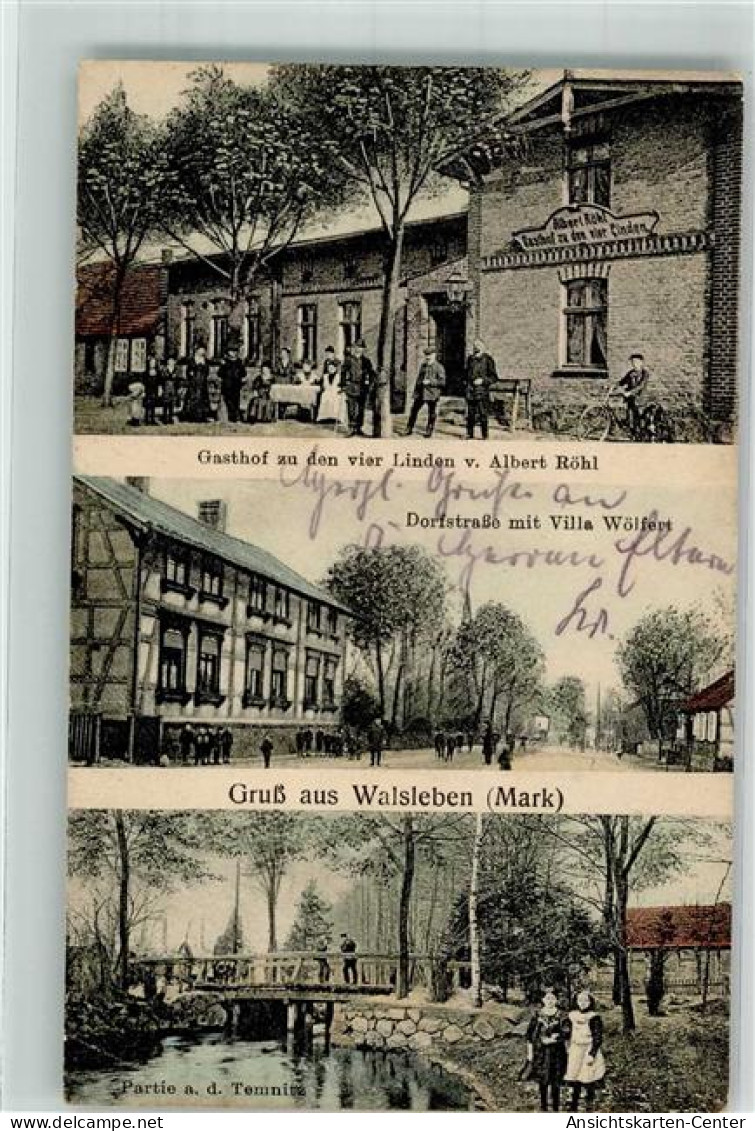 Albert Röhl
Gasthof zu den vier Linden
Gasthof zu den vier Linden v. Albert Röhl
Herzl. Grüße an
Dorfstraße mit Villa Wölfert
Eltern
Gruß aus Walsleben (Mark)
Partie a. d. Temnitz
www.delcampe.net
Ansichtskarten-Center